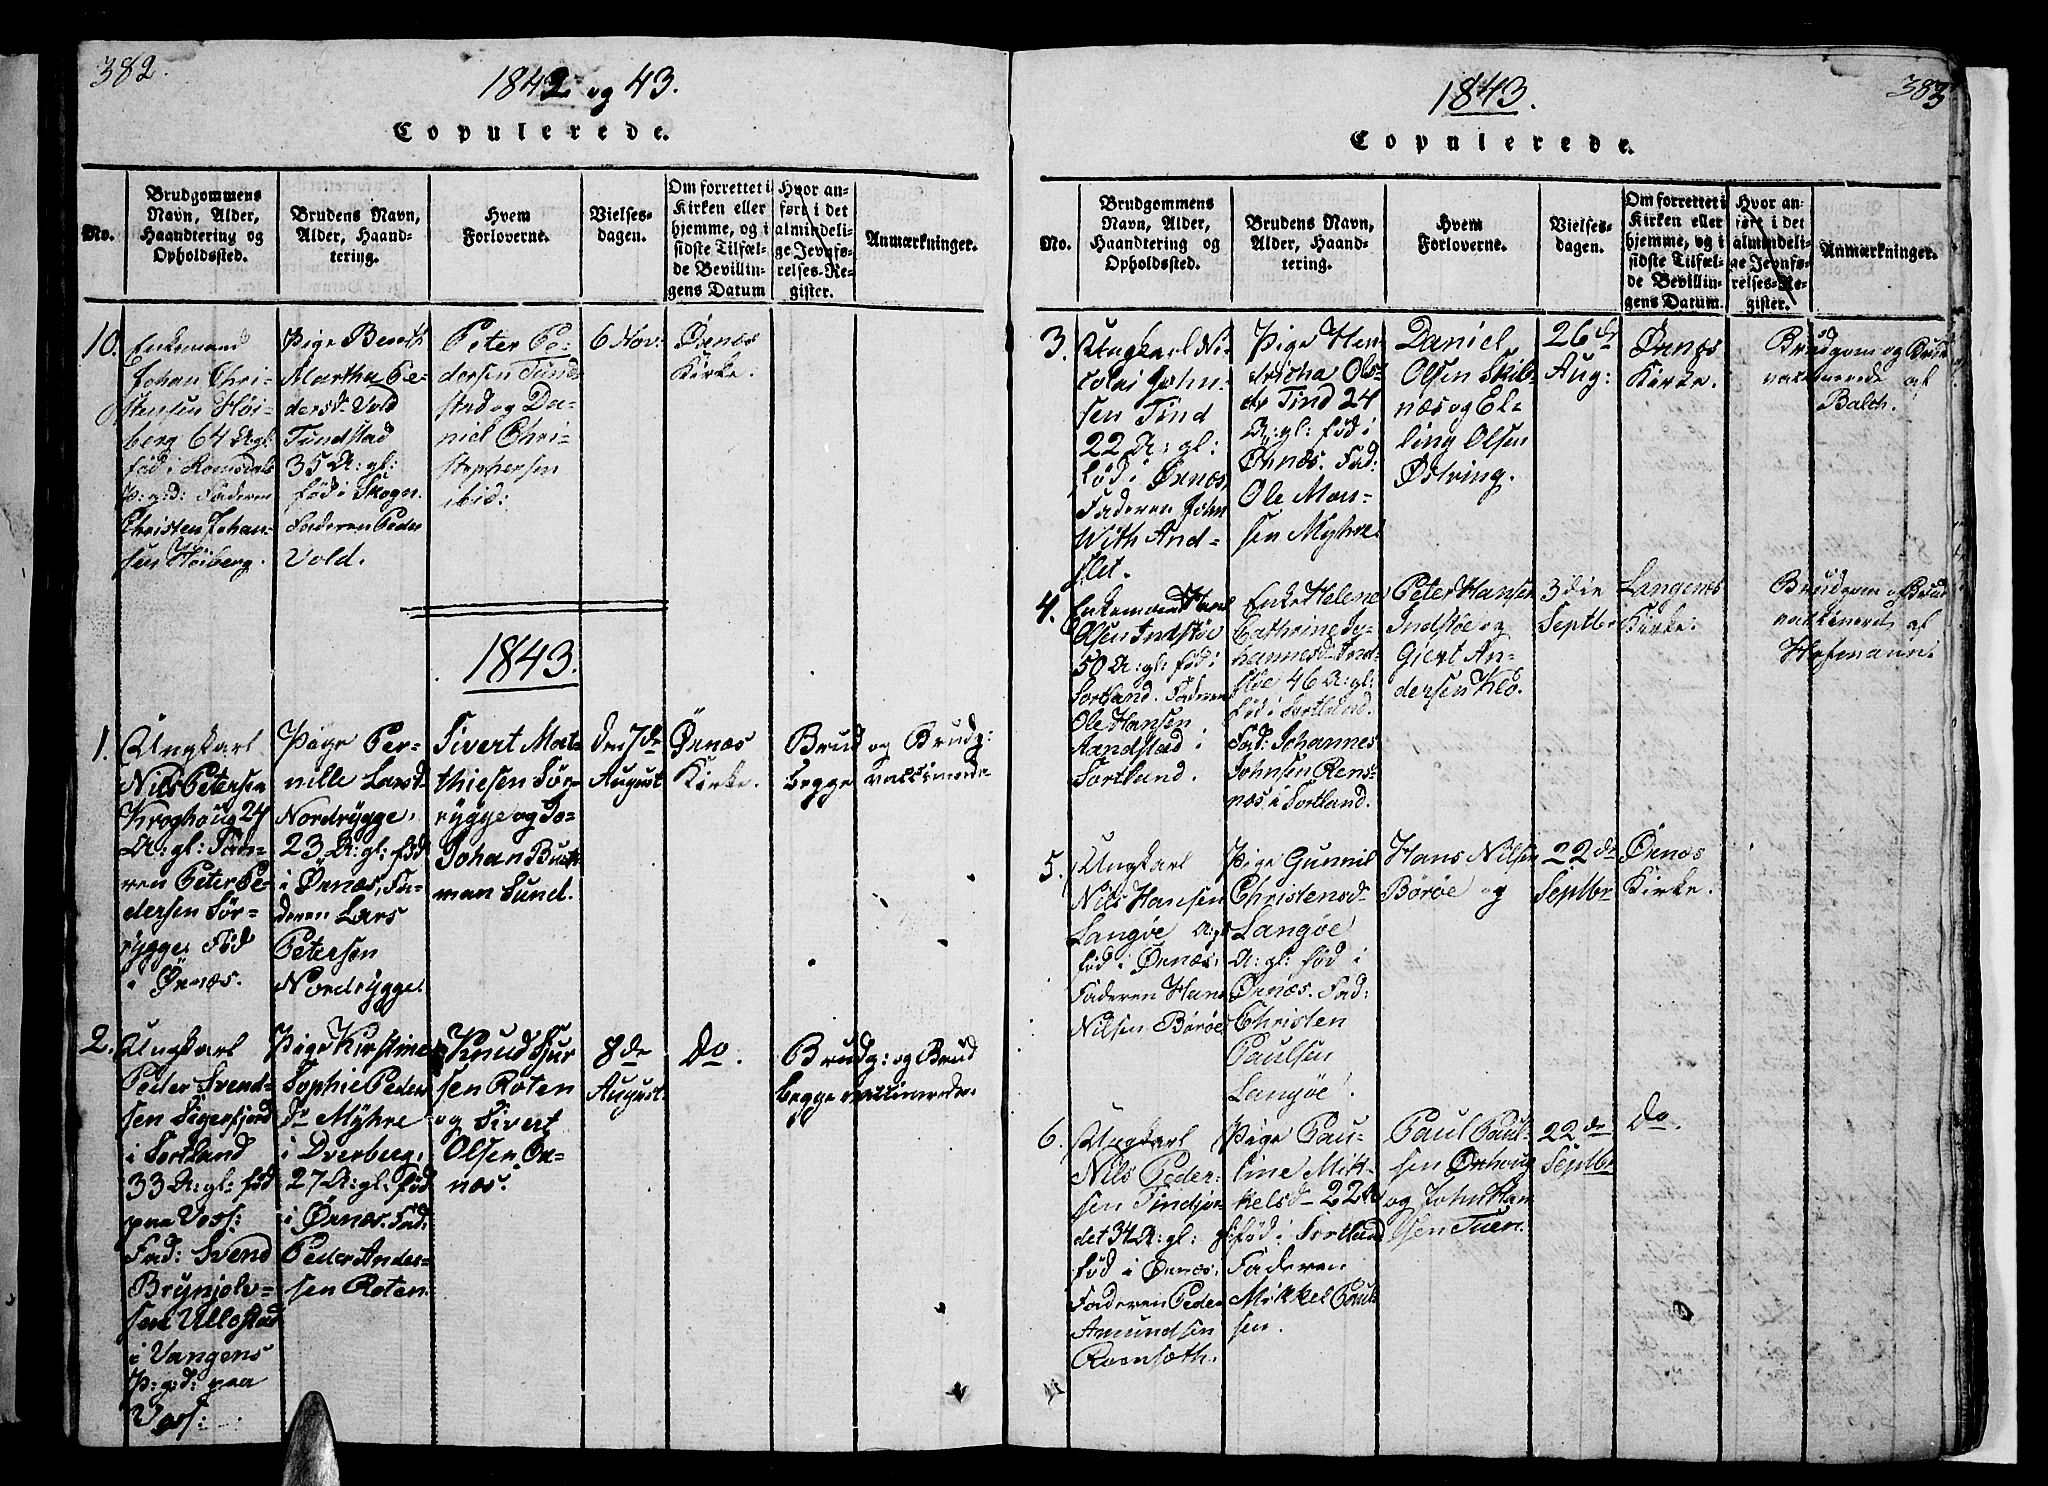 382.
1842 og 43.
Copulerede.
No.
Brudgommens
Navn, Alder,
Haandtering og
Opholdssted.
Brudens Navn,
Alder, Haand-
tering.
Hvem
Forloverne.
Vielses-
dagen.
Om forrettet i
Kirken eller
hjemme, og i
sidste Tilfæl-
de Bevillin-
gens Datum
Hvor an-
ført i det
almindeli-
ge Jevnfø-
relses-Re-
gister.
Anmærkninger.
10.
Enkemand
Johan Chri-
stensen Höi-
berg 64 A: gl:
fød i Romsdals
P: g: d: Faderen
Christen Johan-
sen Höiberg.
Pige Beret
Martha Pe-
dersd: Vold
Tundstad
35 A: gl:
fød i Skogn.
Faderen Peder
Vold.
Peter Pe-
dersen Tund-
stad og Da-
niel Chri-
stophersen
ibid:
6 Nov:
Örnæs
Kirke.
1843.
1.
Ungkarl
Nils Petersen
Kroghoug 24
A: gl: Fade-
ren Peter Pe-
dersen Sør-
rygge, Fød
i Örnæs.
Pige Per-
nille Larsd
Nordrygge,
23 A: gl: fød
i Örnæs, Fa-
deren Lars
Petersen
Nordrygge
Sivert Mat-
thiesen Sør-
rygge og Jo-
Johan Buck-
man Sund.
den 7de
August
Örnæs
Kirke.
Brud og Brudg:
begge vaccinerede
2.
Ungkarl
Peder Svend-
sen Sigerfjord
i Sortland
33 A: gl: fød
paa Vors:
Fad: Svend
Brynjolv-
sen Ullestad
i Vangens
P: g: d: paa
Vors:
Pige Kirstine
Sophie Peders
dr Myhre
i Dverberg,
27 A: gl: fød
i Örnæs. Fad:
Peder Anders-
sen Roten.
Knud Sjur
sen Roten
og Sivert
Olsen Ör-
næs.
8de
August.
Do.
Brudg: og Brud
begge vaccinerede.
1843.
383
Copulerede.
No.
Brudgommens
Navn, Alder,
Haandtering og
Opholdssted.
Brudens Navn,
Alder, Haand-
tering.
Hvem
Forloverne.
Vielses-
dagen.
Om forrettet i
Kirken eller
hjemme, og i
sidste Tilfæl-
de Bevillin-
gens Datum.
Hvor an-
ført i det
almindeli-
ge Jevnfø-
relses-Re-
gister.
Anmærkninger.
3.
Ungkarl Ni-
colai John-
sen Tind
22 A: gl:
fød i Örnæs
Faderen John
With And-
slet.
Pige Hen-
dricha Ols-
dr Tind 24
A: gl: fød i
Örnæs. Fad:
Ole Mon-
sen Myhre
Daniel
Olsen Skib-
næs og El-
ling Olsen
Østring.
26de
Aug:
Örnæs
Kirke.
Brudgom og Brud
vaccinerede af
Balch.
4.
Enkemand Hans
Olsen Indstöe
50 A: gl: fød i
Sortland. Faderen
Ole Hansen
Aandstad i
Sortland.
Enke Helene
Cathrine Jo-
hannesd: Ind-
stöe 46 A: gl:
fød i Sortland.
Fad: Johannes
Johnsen Rens-
næs i Sortland.
Peter Hansen
Indstöe og
Giert An-
dersen Klo.
3die
Septbr
Langenæs
Kirke.
Brudgom og Brud
vaccineret af
Hofmann.
5.
Ungkarl
Nils Hansen
Langøe A: gl
fød i Örnæs,
Faderen Hans
Nilsen Börøe
Pige Gunnil
Christensd-
Langøe
A: gl: fød i
Örnæs. Fad:
Christen
Paulsen
Langøe
Hans Nilsen
Börøe og
22de
Septbr
Örnæs
Kirke.
6.
Ungkarl
Nils Peder-
sen Tindsør-
det 34 A: gl:
fød i Örnæs,
Faderen Peder
Amundsen
Romsæth.
Pige Pau-
line Mik-
kelsd- 22 A
gl: fød i Sortland
Faderen
Mikkel Paul-
sen.
Paul Paul-
sen Ørhoug
og John Han
sen Tuen.
22de
Septbr
Do.